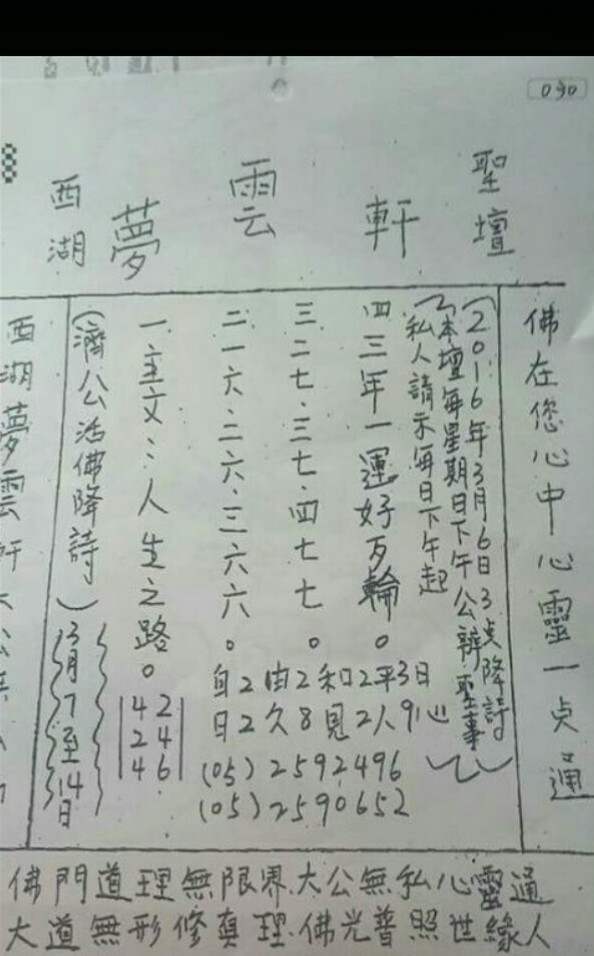 030
聖壇
軒
雲
夢
西湖
佛在您心中心靈一点通
(2016年3月6日3点降詩)
(本壇每星期日下午公辦聖事)
私人請示每日下午起
四三年一運好歹輪。
三二七.三七.四七七。
二一六.二六.三六六。
一主文:人生之路。
(濟公活佛降詩)
3月7至14日
自2由2和2平3日
日2久8見2人9心
(05)2592496
(05)2590652
42
24
46
西湖夢雲軒
佛門道理無限界.大公無私心靈通
大道無形修真理.佛光普照世緣人